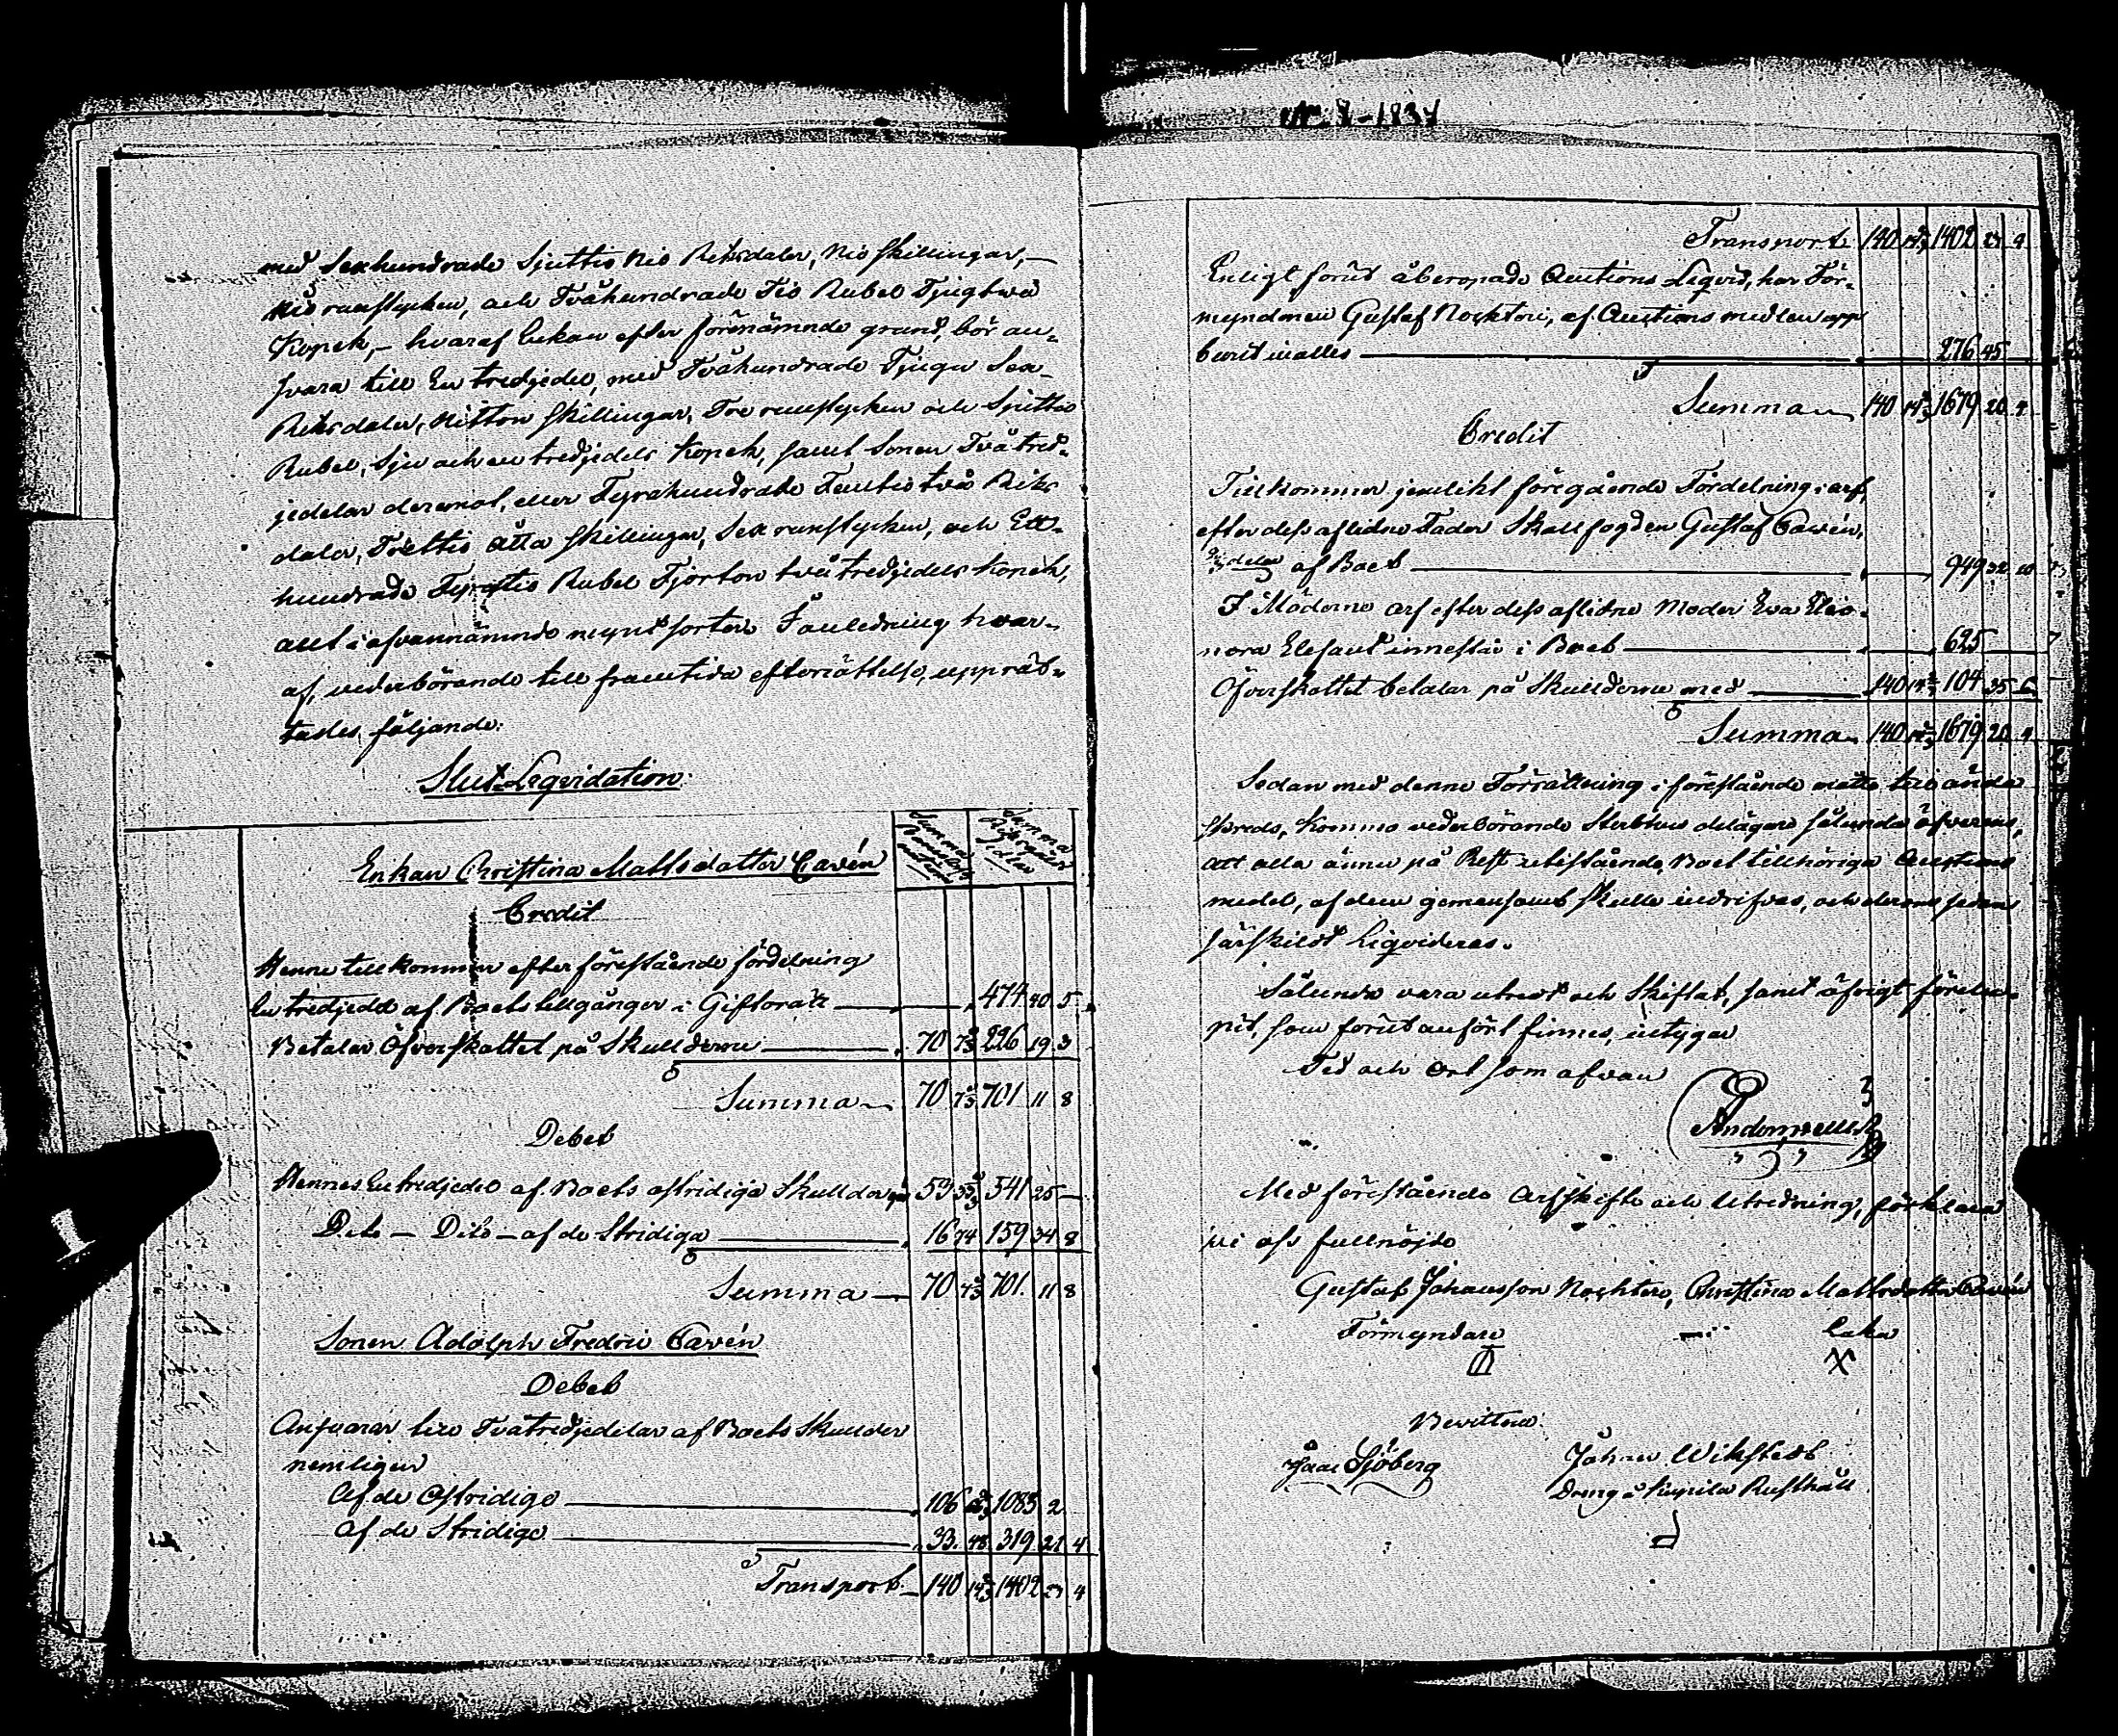 med Sexhundrade Sjuttio Nio Riksdaler, Nio skillingar,
Nio runstycken, och Tvåhundrade Tio Rubel Tjugtvå
Kopek, – hvaraf Enkan efter förenämnde grund, bör an-
svara till En tredjedel, med Tvåhundrade Tjugu Sex
Riksdaler, Nitton skillingar, Tre runstycken och Sjuttio
Rubel, Sju och en tredjedels Kopek, samt Sonen Två tred-
jedelar deremot, eller Fyrahundrade Femtio två Riks
daler, Trettio åtta skillingar, Sex runstycken, och Ett-
hundrade Fyratio Rubel Fjorton två tredjedels Kopek,
allt i ofvannämnde myntsorter. I anledning hvar-
af, vederbörande till framtida efterrättelse, upprät-
tades följande:
Slut Leqvidation:
Summa
Summa Riksgäldssedlar
Enkan Christina Mattsdotter Cavén
Credit
Henne tillkommer efter förestående fördelning
En tredjedel af Boets tillgångar i Giftorätt — 474 40 5
Betalar Öfverskottet på Skulderne — 70 7⅓ 226 19 3
Summa 70 7⅓ 701 11 8
Debet
Hennes En tredjedel af Boets ostridiga Skulder gör 53 33⅓ 541 25 —
Dito – Dito – af de Stridiga — 16 74 159 34 8
Summa — 70 7⅓ 701 11 8
Sonen Adolph Fredric Cavén
Debet
Ansvarar till Två tredjedelar af Boets Skulder
nemligen
Af de Ostridige — 106 66⅔ 1083 2
Af de Stridige — 33 48 319 21 4
Transport 140 14⅔ 1402 23 4
1834
Transport 140 14⅔ 1402 23 4
Enligt förut åberopade Auctions Leqvid, har För-
myndaren Gustaf Nochton, af Auctions medlen upp
burit inalles — 276 45
Summa 140 14⅔ 1679 20 4
Credit
Tillkommer jemlikt föregående Fördelning i arf,
efter dess aflidne Fader Skallfogden Gustaf Cavén,
⅔ delar af Boet — 949 32 10
I Möderne arf efter dess aflidne Moder Eva Eleo-
nora Elefant innestår i Boet — 625
Öfverskottet betalar på Skulderne med — 140 14⅔ 104 35 6
Summa 140 14⅔ 1679 20 4
Sedan med denne Förrättning i förestående måtto till ända
skreds, kommo vederbörande Sterbhus delägare sålunda öfverens,
att alla ännu på Rest utestående, Boet tillhöriga Auctions
medel, af dem gemensamt skulle indrifvas, och derom sedan
särskildt Liqvideras.
Sålunda vara utredt och Skiftat, samt öfrigt förelu-
pit, som förut anfört finnes, intygar
Tid och Ort som ofvan
Med förestående Arfskifte och Utredning, förklara
vi oss fullnöjde
Gustaf Johansson Nochton, Christina Mattsdotter Cavén
Förmyndare Enka
X
Bevittna:
Isaac Sjöberg Johan Wikstedt
Dräng å Rusthåll